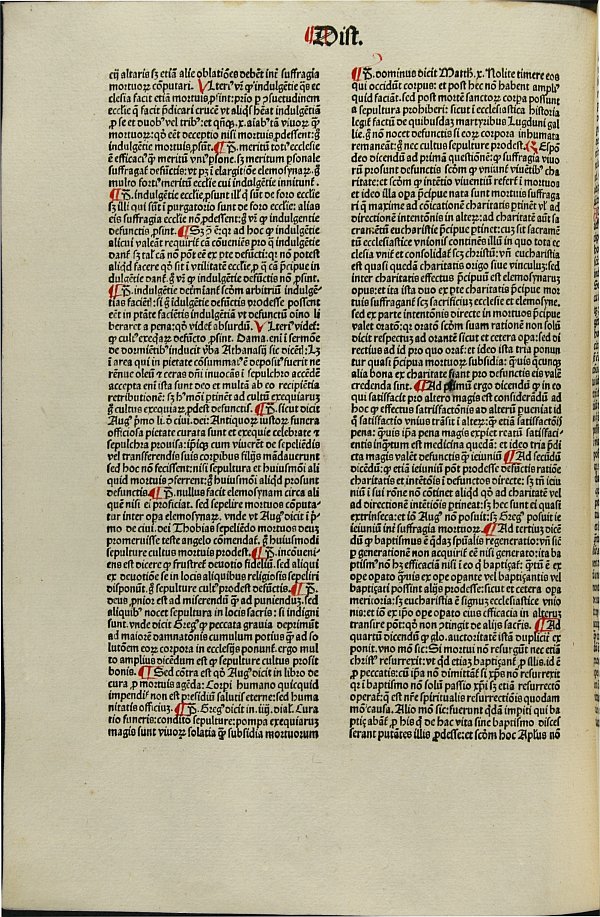 ¶ Dist.
cij altaris sʒ etiā alie oblatiões debēt int̄ suffragia
mortuoꝝ cōputari. Vlteriꝰ vr̄ ꝙ indulgētie qͣs ec
clesia facit etiā mortuis ꝓsint: prio ꝑ ↄsuetudinem
ecclie
mortuoꝝ:
indulgētie mortuis ꝓsūt. ¶ P̄. meritū totiꝰ ecclesie
ē efficaciꝰ ꝙ̄ meritū vniꝰ ꝑsone. sʒ meritum ꝑsonale
suffragat̄ defūctis: vt pʒ ī elargitiōe elemosynaꝝ. ḡ
multo fortiꝰ meritū ecclie cui indulgētie innitunt̄.
¶ P̄. indulgētie ecclie ꝓsunt
eis suffragia ecclesie nō ꝓdessent: ḡ vr̄ ꝙ indulgentie
defunctis ꝓsint. ¶ Sʒ ↄ̄ ē: qꝛ ad hoc ꝙ indulgētie
alicui valeāt requirit̄ cā cōueniēs pro q̄ indulgētie
dant̄ sʒ tal' cā nō pōt eē ex pte defūcti: qꝛ nō potest
aliqd facere qd̄ sit ī vtilitatē ecclie
¶ P̄. indulgētie determīant̄ scdm arbitriū indulgē
tias faciētꝭ: si ḡ īdulgētie defūctis prodesse possent
eēt in ptāte faciētis indulgētiā vt defunctū oīno li
beraret a pena: qd̄ videt̄ absurdū. Vlteriꝰ videt̄
ꝙ cultꝰ exeqaꝝ defūctꝭ ꝓsit. Dama. eni ī sermōe
de dormiētibꝰ inducit vba Athanasij sic dicētꝭ: Lʒ
ī area qui in pietate cōsumatꝰ ē depositꝰ fuerit ne
rēnue oleū ⁊ ceras dn̄i inuocās ī sepulchro accēdē
accepta eni ista sunt deo et multā ab eo recipiētia
retributionē: sʒ hꝰmōi ptinēt ad cultū exequiarum
ḡ cultus exequiaꝝ ꝓdest defunctis. ¶ P̄. sicut dicit
Augꝰ pͥmo li. ꝺ ciui. dei: Antiquoꝝ iustoꝝ funera
officiosa pietate curata sunt et exequie celebrate ⁊
sepultura prouisa: ip̄iqꝫ cum viuerēt de sepeliēdis
vel transferendis suis corpibus filijs mādauerunt
sed hoc nō fecissent: nisi sepultura et huiusmōi ali
quid mortuis ↄferrent: ḡ huiusmōi aliqd prosunt
defunctis. ¶ P̄. nullus facit elemosynam circa ali
quē nisi ei proficiat. sed sepelire mortuos cōputa-
tur inter opa elemosynaꝝ. vnde vt Augꝰ dicit ī pͥ
mo de ciui. dei Thobias sepeliēdo mortuos deuʒ
promeruisse teste angelo cōmendat̄. ḡ huiusmodi
sepulture cultus mortuis prodest. ¶ P̄. incōueni
ens est dicere ꝙ frustret̄ deuotio fidelium. sed aliqui
ex deuotiōe se in locis aliquibus religiosis sepeliri
disponūt. ḡ sepulture cultꝰ prodest defūctis. ¶ P̄.
deus ꝓnior est ad miserendū ꝙ̄ ad puniendum. sed
aliquibꝰ nocet sepultura in locis sacris: si indigni
sunt. vnde dicit Gregꝰ ꝙ peccata grauia deprimunt
ad maiorē damnatonis cumulum potius ꝙ̄ ad so
lutōem eoꝝ corpora in ecclesijs ponunt̄. ergo mul
to amplius dicēdum est ꝙ sepulture cultus prosit
bonis. ¶ Sed cōtra est qd̄ Augꝰ dicit in libro de
cura ꝓ mortuis agēda: Corpi humano quicquid
impendit̄ non est presidiū salutis eterne: sed huma
nitatis officiuʒ. ¶ P̄. Gregꝰ dicit in. iiij. dial'. Cura
tio funeris: conditō sepulture: pompa exequiarum
magis sunt viuoꝝ solatia ꝙ̄ subsidia mortuorum
¶ P̄. dominus dicit Matth. x. Nolite timere eos
qui occidūt corpus: et post hec nō habent ampliꝰ
quid faciāt. sed post mortē sanctoꝝ corpa possunt
a sepultura prohiberi: sicut ī ecclesiastica historia
legit̄ factū de quibusdaʒ martyribus Lugduni gal
lie. ḡ nō nocet defunctis si eoꝝ corpora inhumata
remaneāt: ḡ nec cultus sepulture prodest. Respō
deo dicendū ad primā questionē: ꝙ suffragia viuo
rū prosunt defunctis scdm ꝙ vniunt̄ viuētibꝰ cha
ritate: et scdm ꝙ intētio viuentiū refert̄ ī mortuos
et ideo illa opa p̄cipue nata sunt mortuis suffraga
ri q̄ maxime ad cōicationē charitatis ptinēt vl' ad
directionē intentōnis in alteꝝ: ad charitatē aūt sa
cramētū eucharistie p̄cipue ptinet: cuʒ sit sacramē
tū ecclesiastice vnionis continēs illū in quo tota ec
clesia vnit̄ et consolidat̄ scʒ christū: vn̄ eucharistia
est quasi quedā charitatis origo siue vinculuʒ: sed
inter charitatis effectus p̄cipuū est elemosynaruʒ
opus: et ita ista duo ex pte charitatis p̄cipue mor
tuis suffragant̄ scʒ sacrificiuʒ ecclesie et elemosyne.
sed ex parte intentōnis directe in mortuos p̄cipue
valet oratō: qꝛ oratō scdm suam rationē non solū
dicit respectū ad orantē sicut et cetera opa: sed di
rectius ad id pro quo orat̄: et ideo ista tria ponun
tur quasi p̄cipua mortuoꝝ subsidia: quis q̄cunqꝫ
alia bona ex charitate fiant pro defunctis eis valē
credenda sint. ¶ Ad pͥmū ergo dicendū ꝙ in eo
qui satisfacit pro altero magis est considerādū ad
hoc ꝙ effectus satisfactōnis ad alterū pueniat id
q̄ satisfactio vnius trāsit ī alteꝝ: ꝙ̄ etiā satisfactōis
pena: quis ip̄a pena magis expiet reatū satisfaci-
entis inqͣtum est medicina quedā: et ideo tria p̄di
cta magis valēt defunctis ꝙ̄ ieiuniū. ¶ Ad secūdū
dicēdū: ꝙ etiā ieiuniū pōt prodesse defūctis ratiōe
charitatis et intētiōis ī defūctos directe: sʒ tn̄ ieiu
niū ī sui rōne nō cōtinet aliqd qd̄ ad charitatē vel
ad directionē intētiōis ptineat: sʒ hec sunt ei quasi
extrinseca: et iō Augꝰ nō posuit: sʒ Gregꝰ posuit ie
iuniū inť suffragia mortuoꝝ. ¶ Ad tertiuʒ dicē
dū ꝙ baptismus ē q̄daʒ spūalis regeneratio: vn̄ sic
ꝑ generationē non acquirit̄ eē nisi generato: ita ba
ptismꝰ nō hʒ efficaciā nisi ī eo q̄ baptiʒat̄: qͣtū ē ex
ope opato ꝙuis ex ope opante vel baptiʒantis vel
baptiʒati possint alijs prodesse: sicut et cetera opa
meritoria: sʒ eucharistia ē signuʒ ecclesiastice vnio
nis: et iō ex ip̄o ope opato eius efficacia in alteruʒ
transire pōt: qd̄ non ↄtingit de alijs sacris. ¶ Ad
quartū dicendū ꝙ glo. auctoritatē istā duplicit̄ ex
ponit. vno mō sic: Si mortui nō resurgūt nec etiā
christꝰ resurrexit: vt qd etiaʒ baptiʒant̄ ꝓ illis. id ē
ꝓ peccatis: cū ip̄a nō dimittāt̄ si xp̄s nō resurrexit
qꝛ ī baptismo nō solū passio xp̄i sʒ etiā resurrectō
operat̄: q̄ est nr̄e spiritualis resurrectiōis quodam
mō causa. Alio mō sic: fuerunt q̄dā impiti qui ba
ptiʒabāt̄ ꝓ his q̄ de hac vita sine baptismo disces
serant putātes illis ꝓdesse: et scdm hoc Aplūs nō